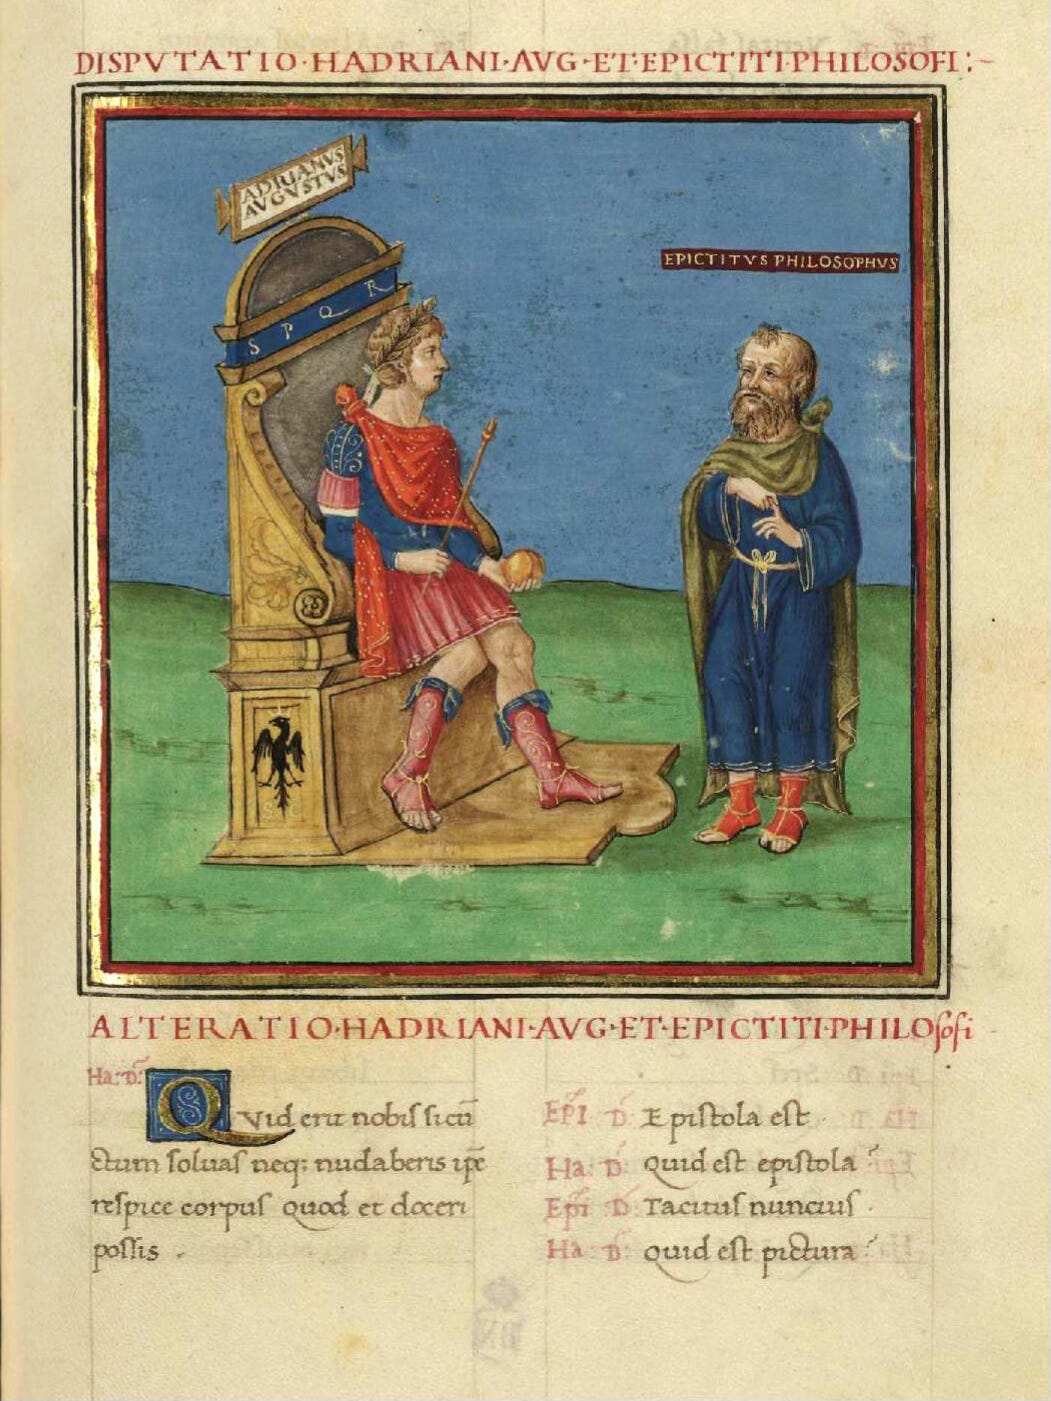 DISPVTATIO·HADRIANI·AVG·ET·EPICTITI·PHILOSOFI:~
ADRIANVS
AVGVSTVS
EPICTITVS PHILOSOPHVS
S P Q R
ALTERATIO·HADRIANI·AVG·ET·EPICTITI·PHILOsofi
Ha: D:
QVid erit nobis si cū
ctum soluas neq; nudaberis ipe
respice corpus quod et doceri
possis .
EPI D: Epistola est .
Ha: D: Quid est epistola ?
Epi D: Tacitus nuncius .
Ha: D: Quid est pictura ?